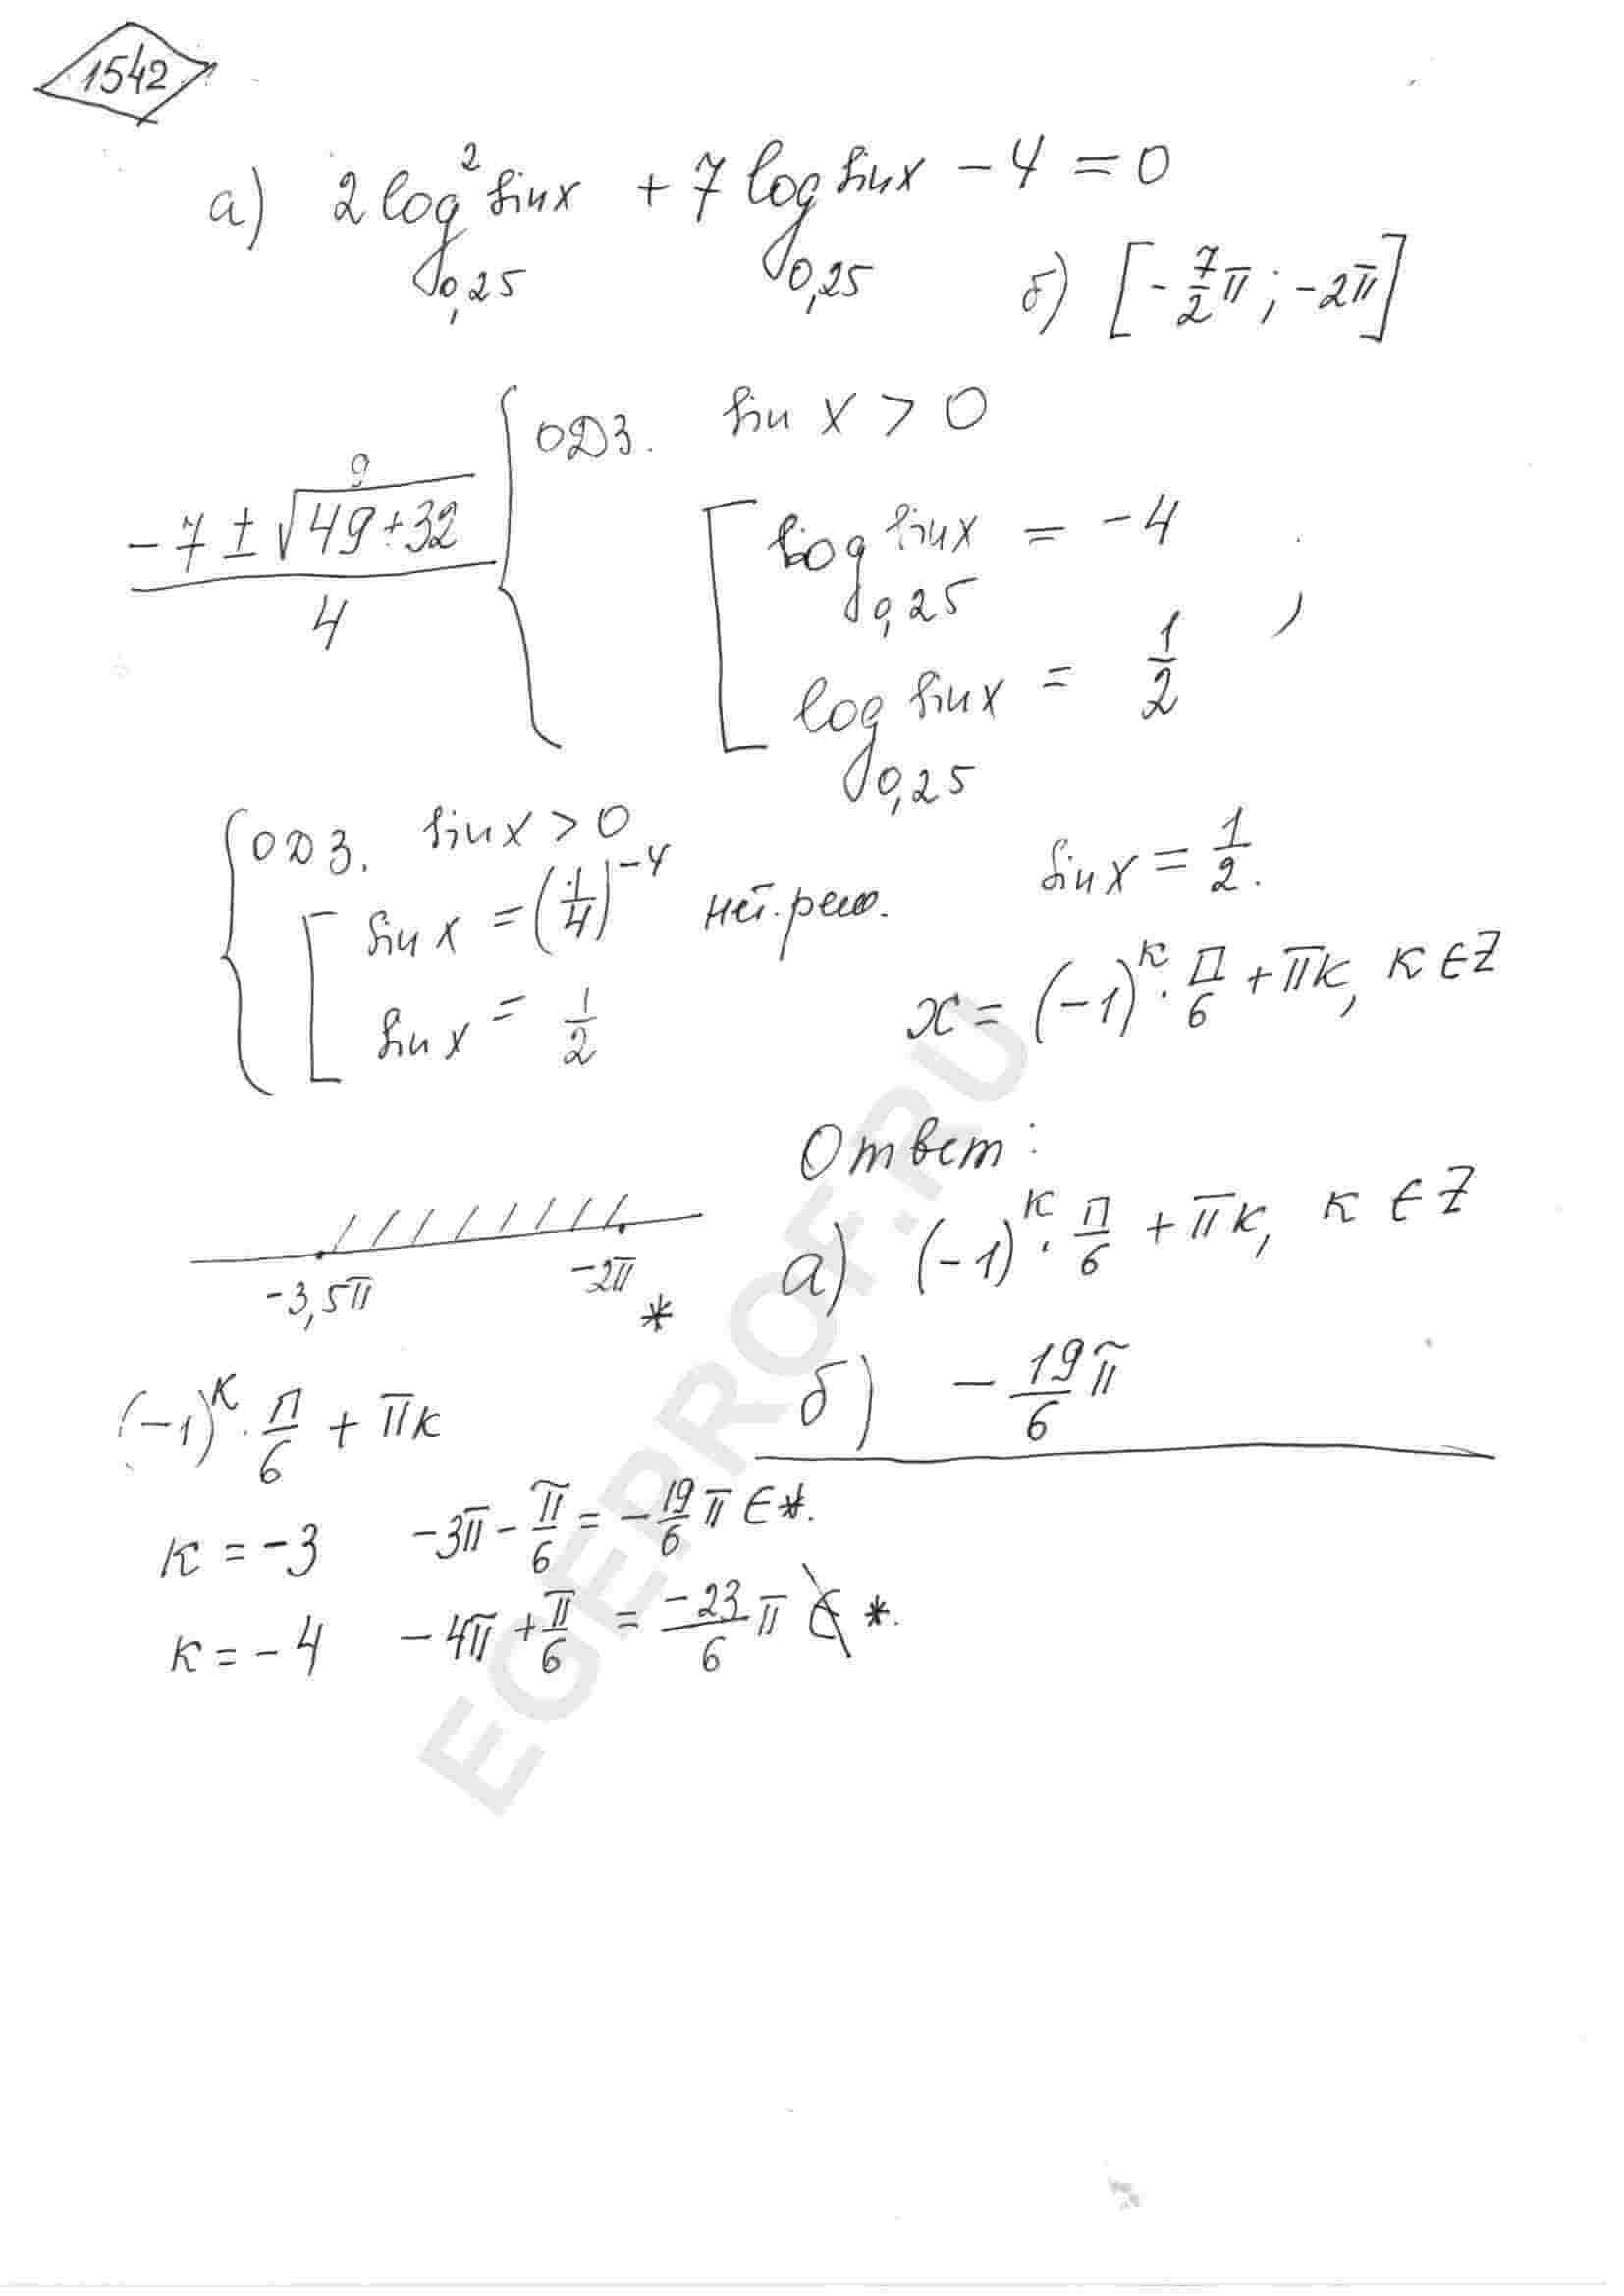 1542
а) 2 log²₀,₂₅ sin x + 7 log₀,₂₅ sin x − 4 = 0
б) [−7/2 π; −2π]
ОДЗ. sin x > 0
(−7 ± √(49+32))/4
9
log₀,₂₅ sin x = −4
log₀,₂₅ sin x = 1/2 ,
ОДЗ. sin x > 0
sin x = (1/4)⁻⁴ нет. реш.
sin x = 1/2
sin x = 1/2.
x = (−1)ᵏ · π/6 + πк, к ∈ Z
Ответ:
а) (−1)ᵏ · π/6 + πк, к ∈ Z
б) − 19π/6
−3,5π −2π *
(−1)ᵏ · π/6 + πк
к = −3 −3π − π/6 = −19/6 π ∈ *.
к = −4 −4π + π/6 = −23/6 π ∉ *.
EGEPROF.RU